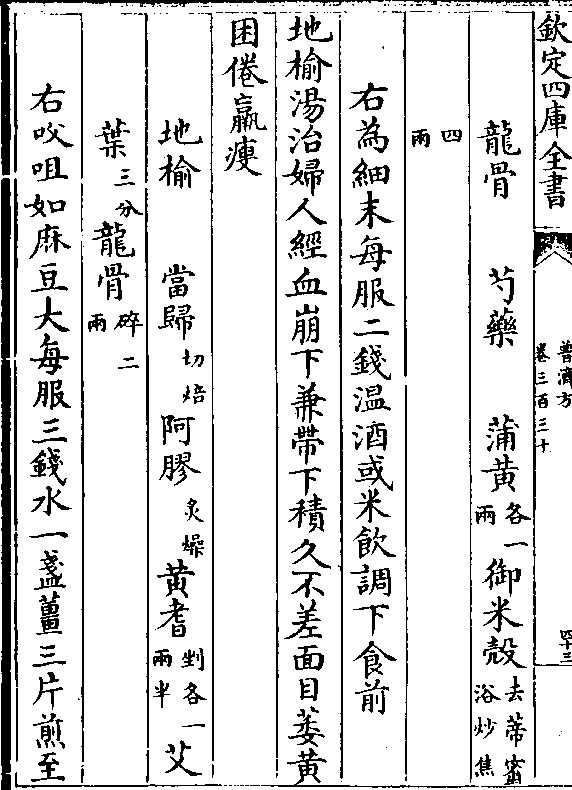 欽定四庫全書
普濟方
卷三百三十
四十三
龍骨 芍藥 蒲黃各一兩 御米殼去蒂蜜浴炒焦
四兩
右為細末每服二錢温酒或米飲調下食前
地榆湯治婦人經血崩下兼帶下積久不差面目萎黃
困倦羸瘦
地榆 當歸切焙 阿膠炙燥 黃耆剉各一兩半 艾
葉三分 龍骨碎二兩
右㕮咀如麻豆大每服三錢水一盞薑三片煎至